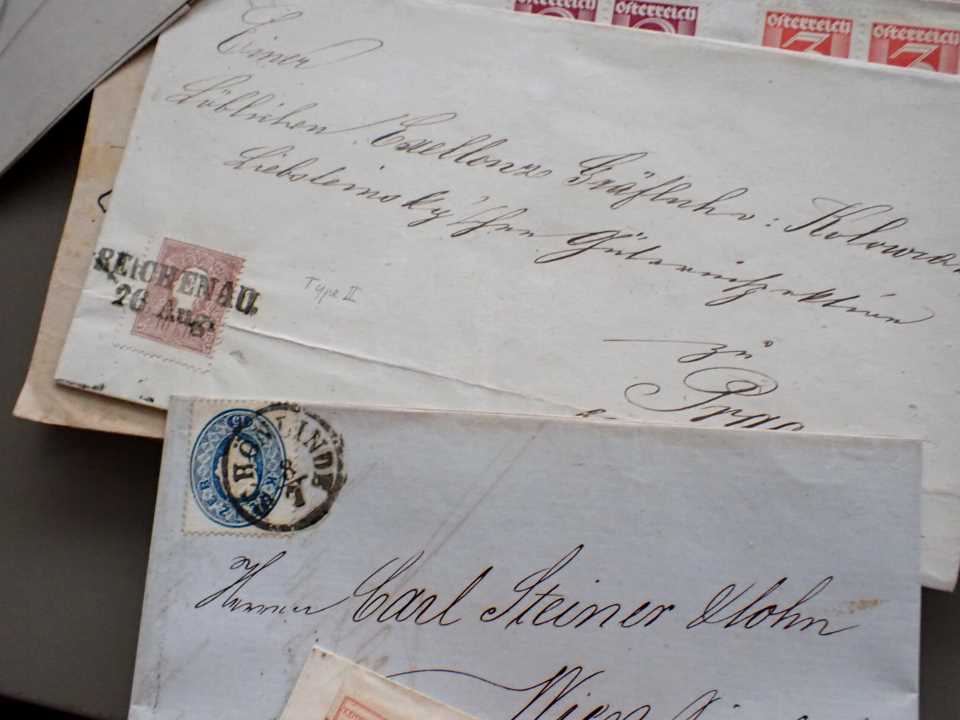 österreich österreich
österreich österreich
3 3
Einer
Löblichen Exellenz Gräflich v: Kolowra
Liebsteinsky'schen Güterinspektion
zu
Prag
REICHENAU.
26 Aug:
Type II
LINDE
8/7
KR
Herrn Carl Steiner & Sohn
Wien